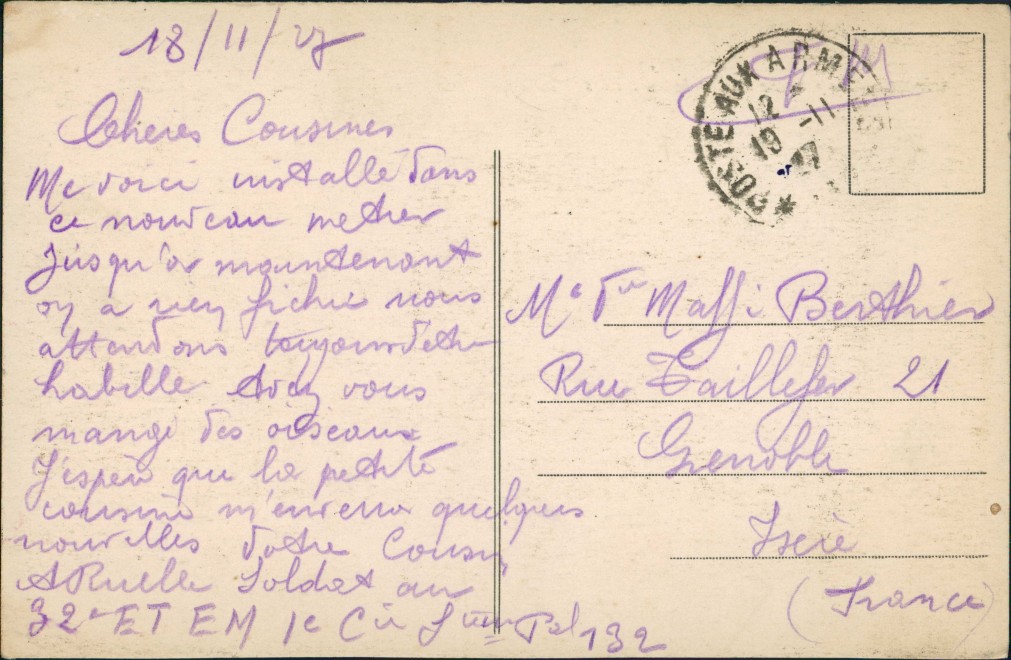 18/11/27
Chères Cousines
Me voici installé dans
ce nouveau metier
Jusqu'a maintenant
on a rien fichu nous
attendons toujours detre
habille Avez vous
mangé des oiseaux
J'espère que la petite
cousine m'enverra quelques
nouvelles Votre Cousin
A Ruelle Soldat au
32e ET EM 1e Cie
132
FM
POSTE AUX ARMEES
12
19 -11
27
Me
Maffi Berthier
Rue Taillefer 21
Grenoble
Isère
(France)